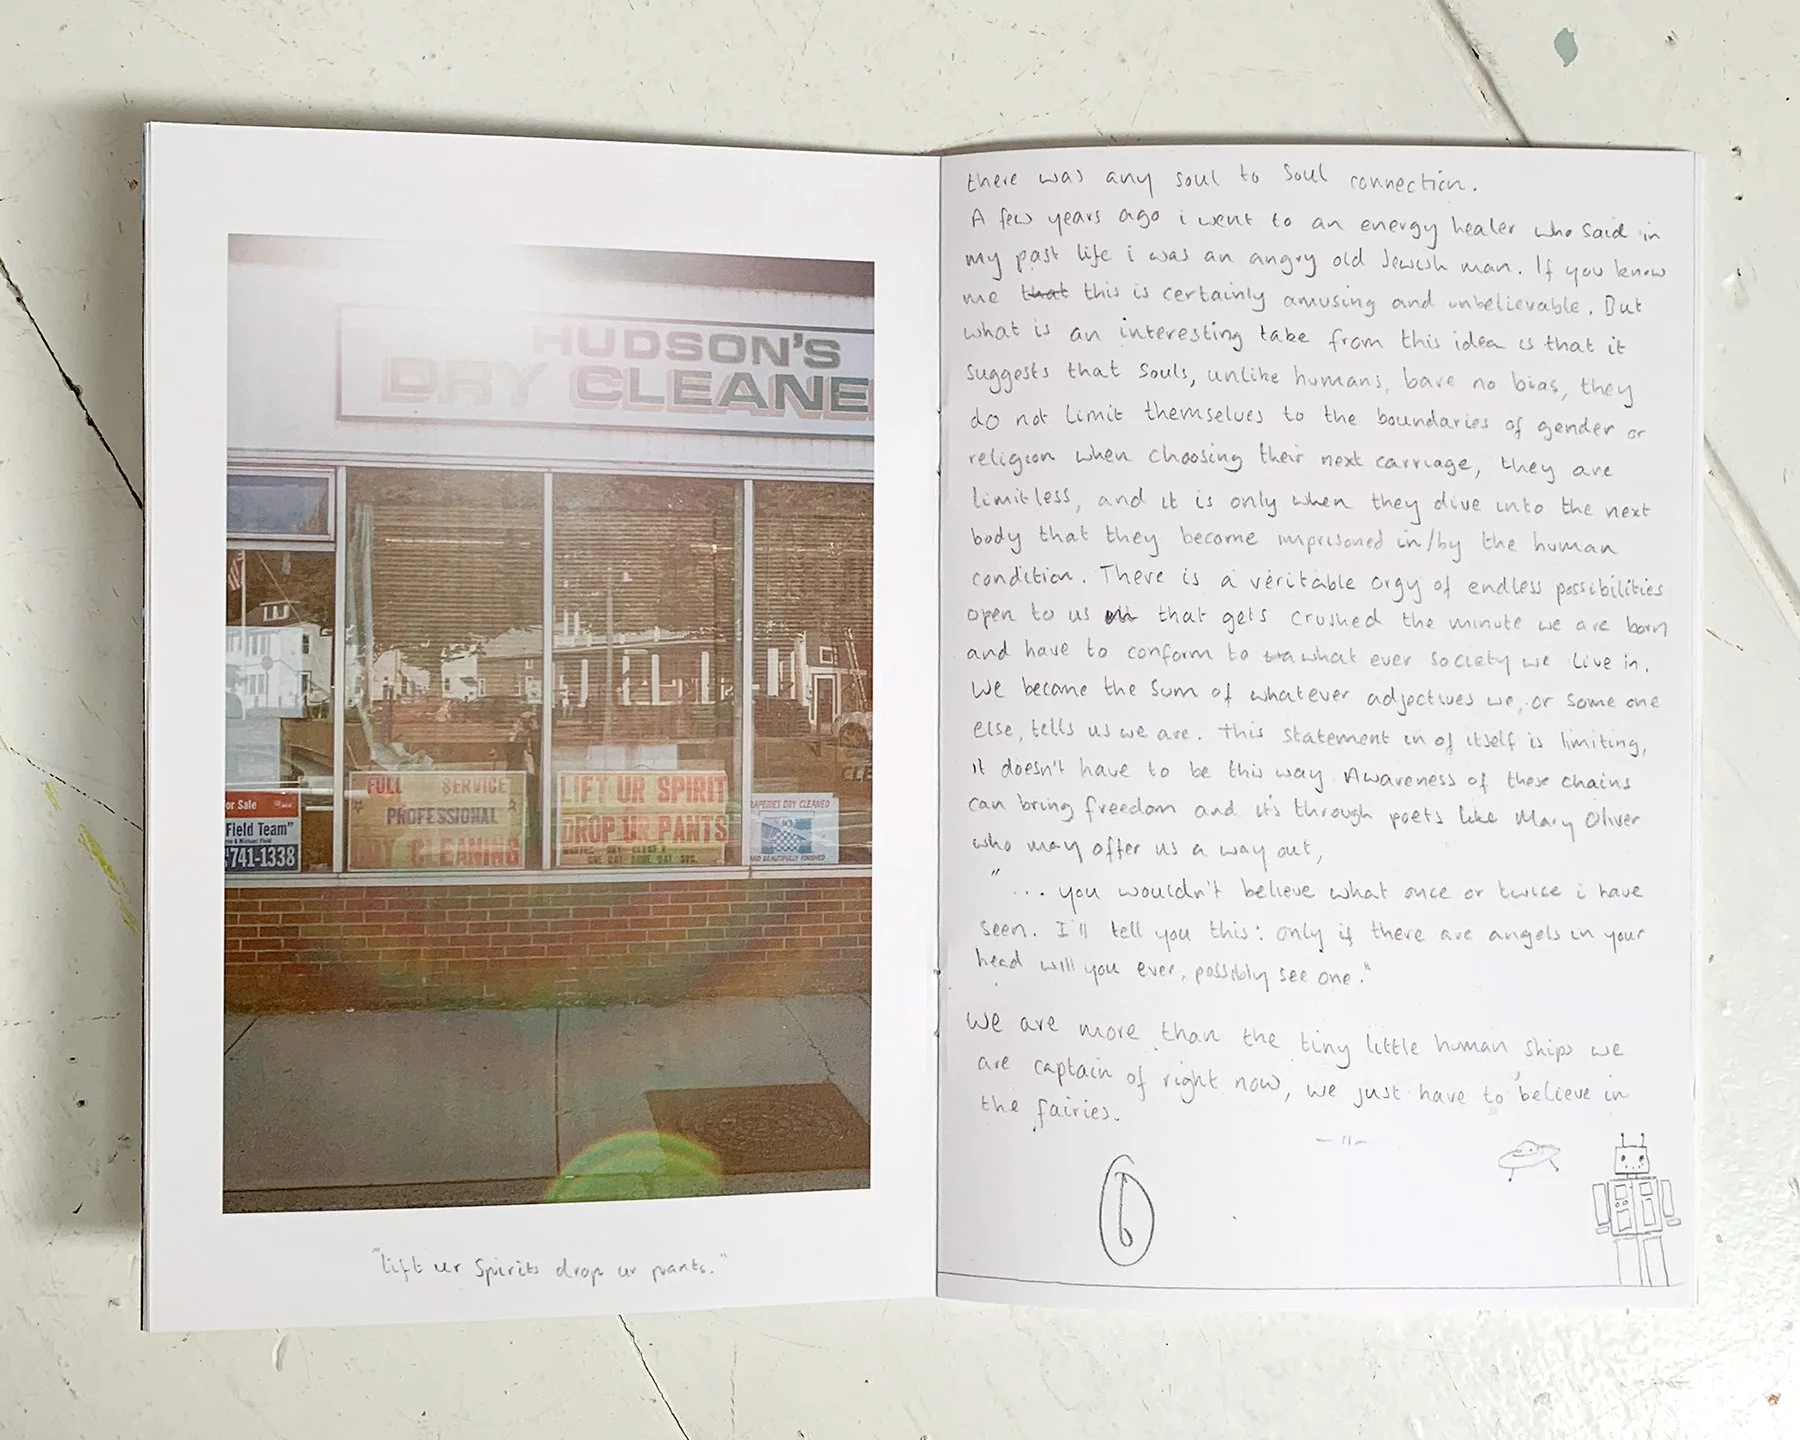 HUDSON'S
DRY CLEANE
or Sale
Field Team"
741-1338
FULL SERVICE
PROFESSIONAL
DRY CLEANING
LIFT UR SPIRIT
DROP UR PANTS
RAPERIES DRY CLEANED
AND BEAUTIFULLY FINISHED
CLE
"lift ur Spirits drop ur pants."
there was any soul to soul connection.
A few years ago i went to an energy healer who said in
my past life i was an angry old Jewish man. If you know
me that this is certainly amusing and unbelievable. But
what is an interesting take from this idea is that it
suggests that souls, unlike humans, bare no bias, they
do not limit themselves to the boundaries of gender or
religion when choosing their next carriage, they are
limitless, and it is only when they dive into the next
body that they become imprisoned in/by the human
condition. There is a veritable orgy of endless possibilities
open to us that gets crushed the minute we are born
and have to conform to what ever society we live in.
We become the sum of whatever adjectives we, or some one
else, tells us we are. This statement in of itself is limiting,
it doesn't have to be this way. Awareness of these chains
can bring freedom and it's through poets like Mary Oliver
who may offer us a way out,
"... you wouldn't believe what once or twice i have
seen. I'll tell you this: only if there are angels in your
head will you ever, possibly see one."
We are more than the tiny little human ships we
are captain of right now, we just have to believe in
the fairies.
6